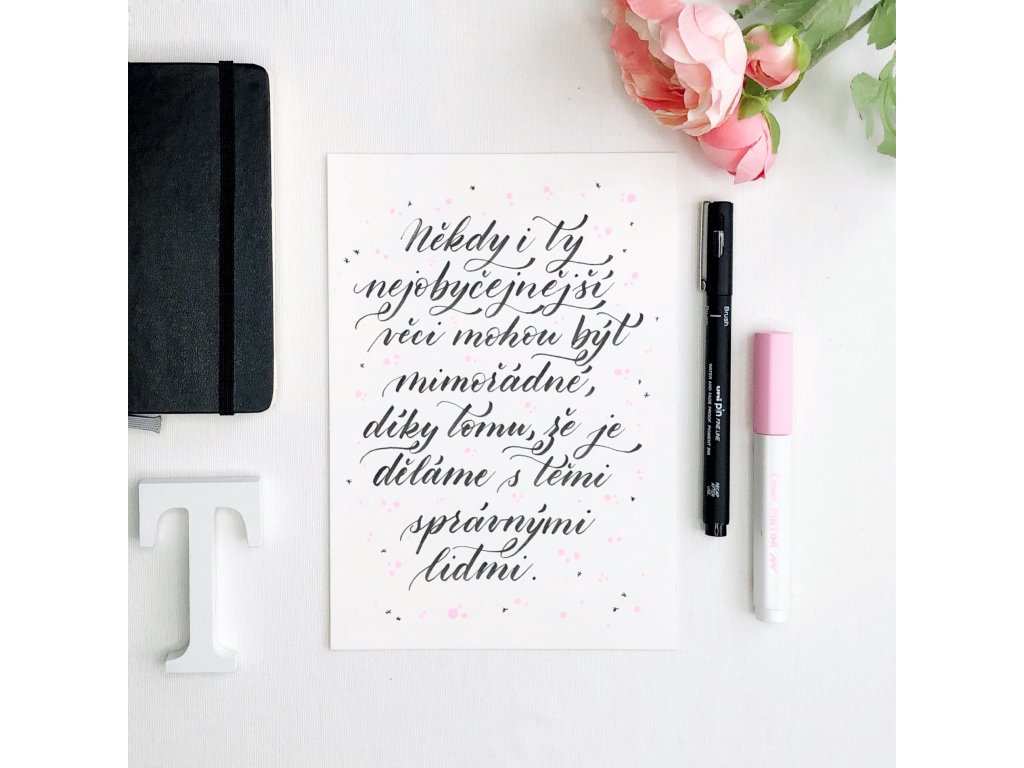 Někdy i ty
nejobyčejnější
věci mohou být
mimořádné,
díky tomu, že je
děláme s těmi
správnými
lidmi.
T
Brush
uni pin FINE LINE
WATER AND FADE PROOF PIGMENT INK